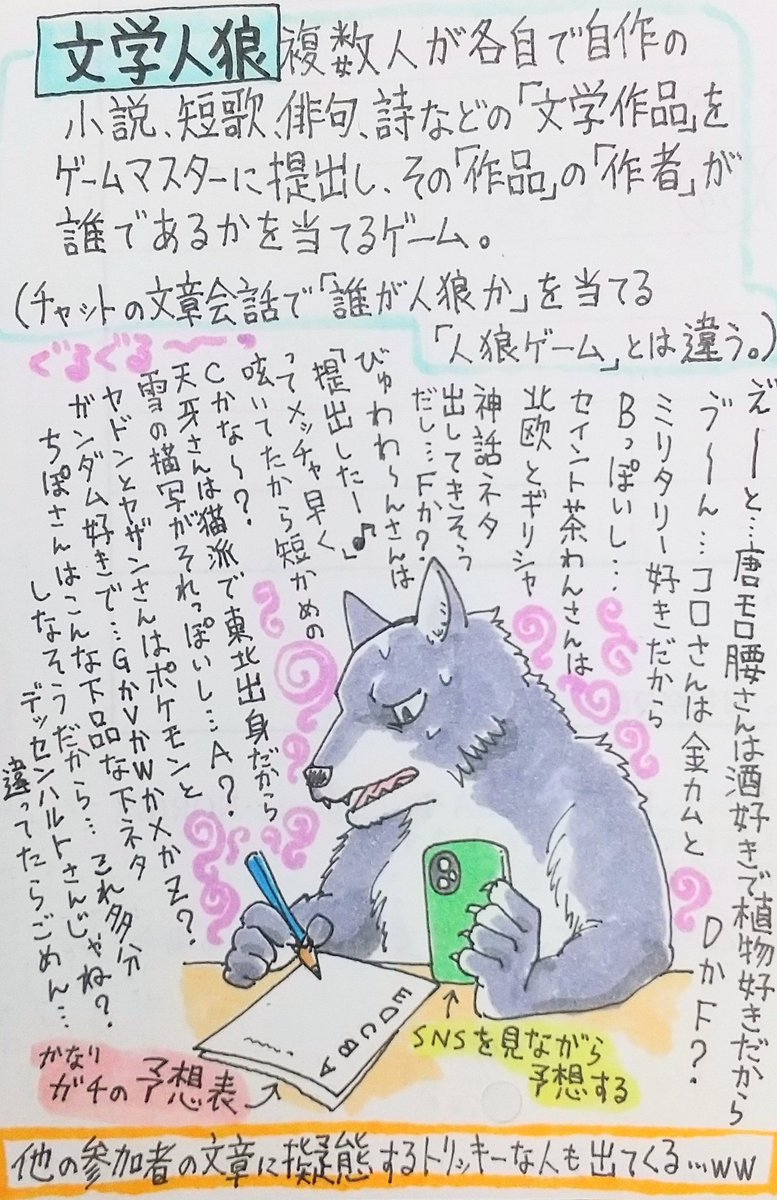 文学人狼
複数人が各自で自作の
小説、短歌、俳句、詩などの「文学作品」を
ゲームマスターに提出し、その「作品」の「作者」が
誰であるかを当てるゲーム。
(チャットの文章会話で「誰が人狼か」を当てる
「人狼ゲーム」とは違う。)
ぐるぐる〜〜っ
え゛ーと…唐モロ腰さんは酒好きで植物好きだから
DかF?
ゔ〜〜ん…コロさんは金カムと
ミリタリー好きだから
Bっぽいし…
セイント茶わんさんは
北欧とギリシャ
神話ネタ
出してきそう
だし…Fか?
びゅわわ〜んさんは
「提出したー♪」
ってメッチャ早く
呟いてたから短かめの
Cかな〜?
天牙さんは猫派で東北出身だから
雪の描写がそれっぽいし…A?
ヤドンとヤザンさんはポケモンと
ガンダム好きで…GかVかWかXかZ?
ちぽさんはこんな下品な下ネタ
しなそうだから…これ多分
デッセンハルトさんじゃね?
違ってたらごめん…
A B C D E
SNSを見ながら
予想する
かなり
ガチの予想表
他の参加者の文章に擬態するトリッキーな人も出てくる…ww